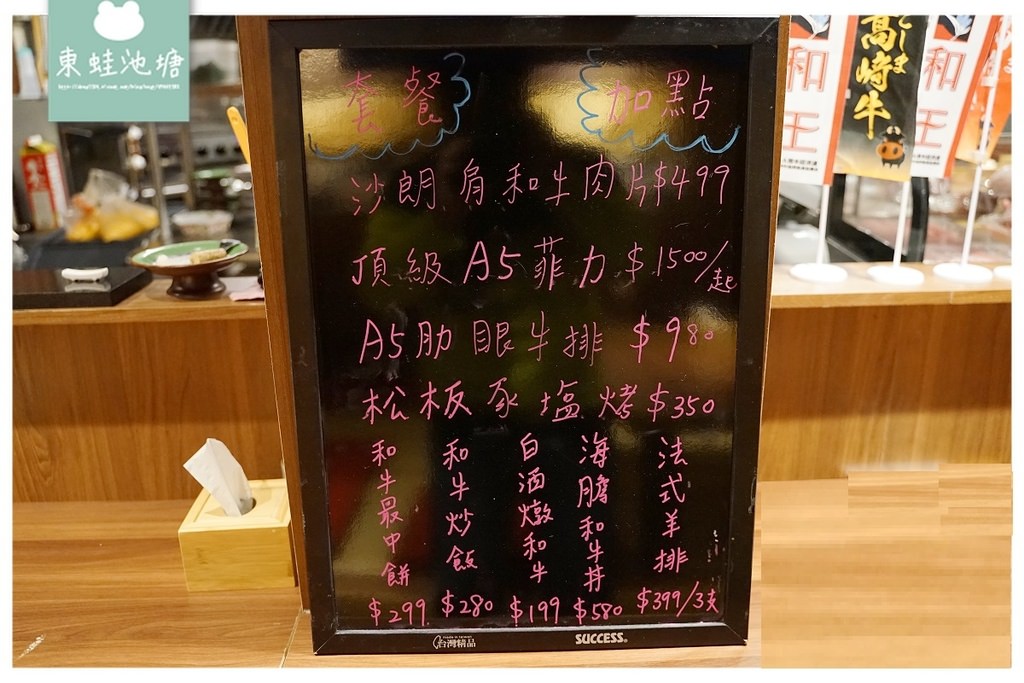 東蛙池塘
套餐 加點
沙朗肩和牛肉片$499
頂級A5菲力$1500/起
A5肋眼牛排 $980
松板豕塩烤$350
和牛最中餅 $299
和牛炒飯 $280
白酒燉和牛 $199
海膽和牛丼 $580
法式羊排 $399/3支
台灣精品
SUCCESS®
和王
高崎牛
和王